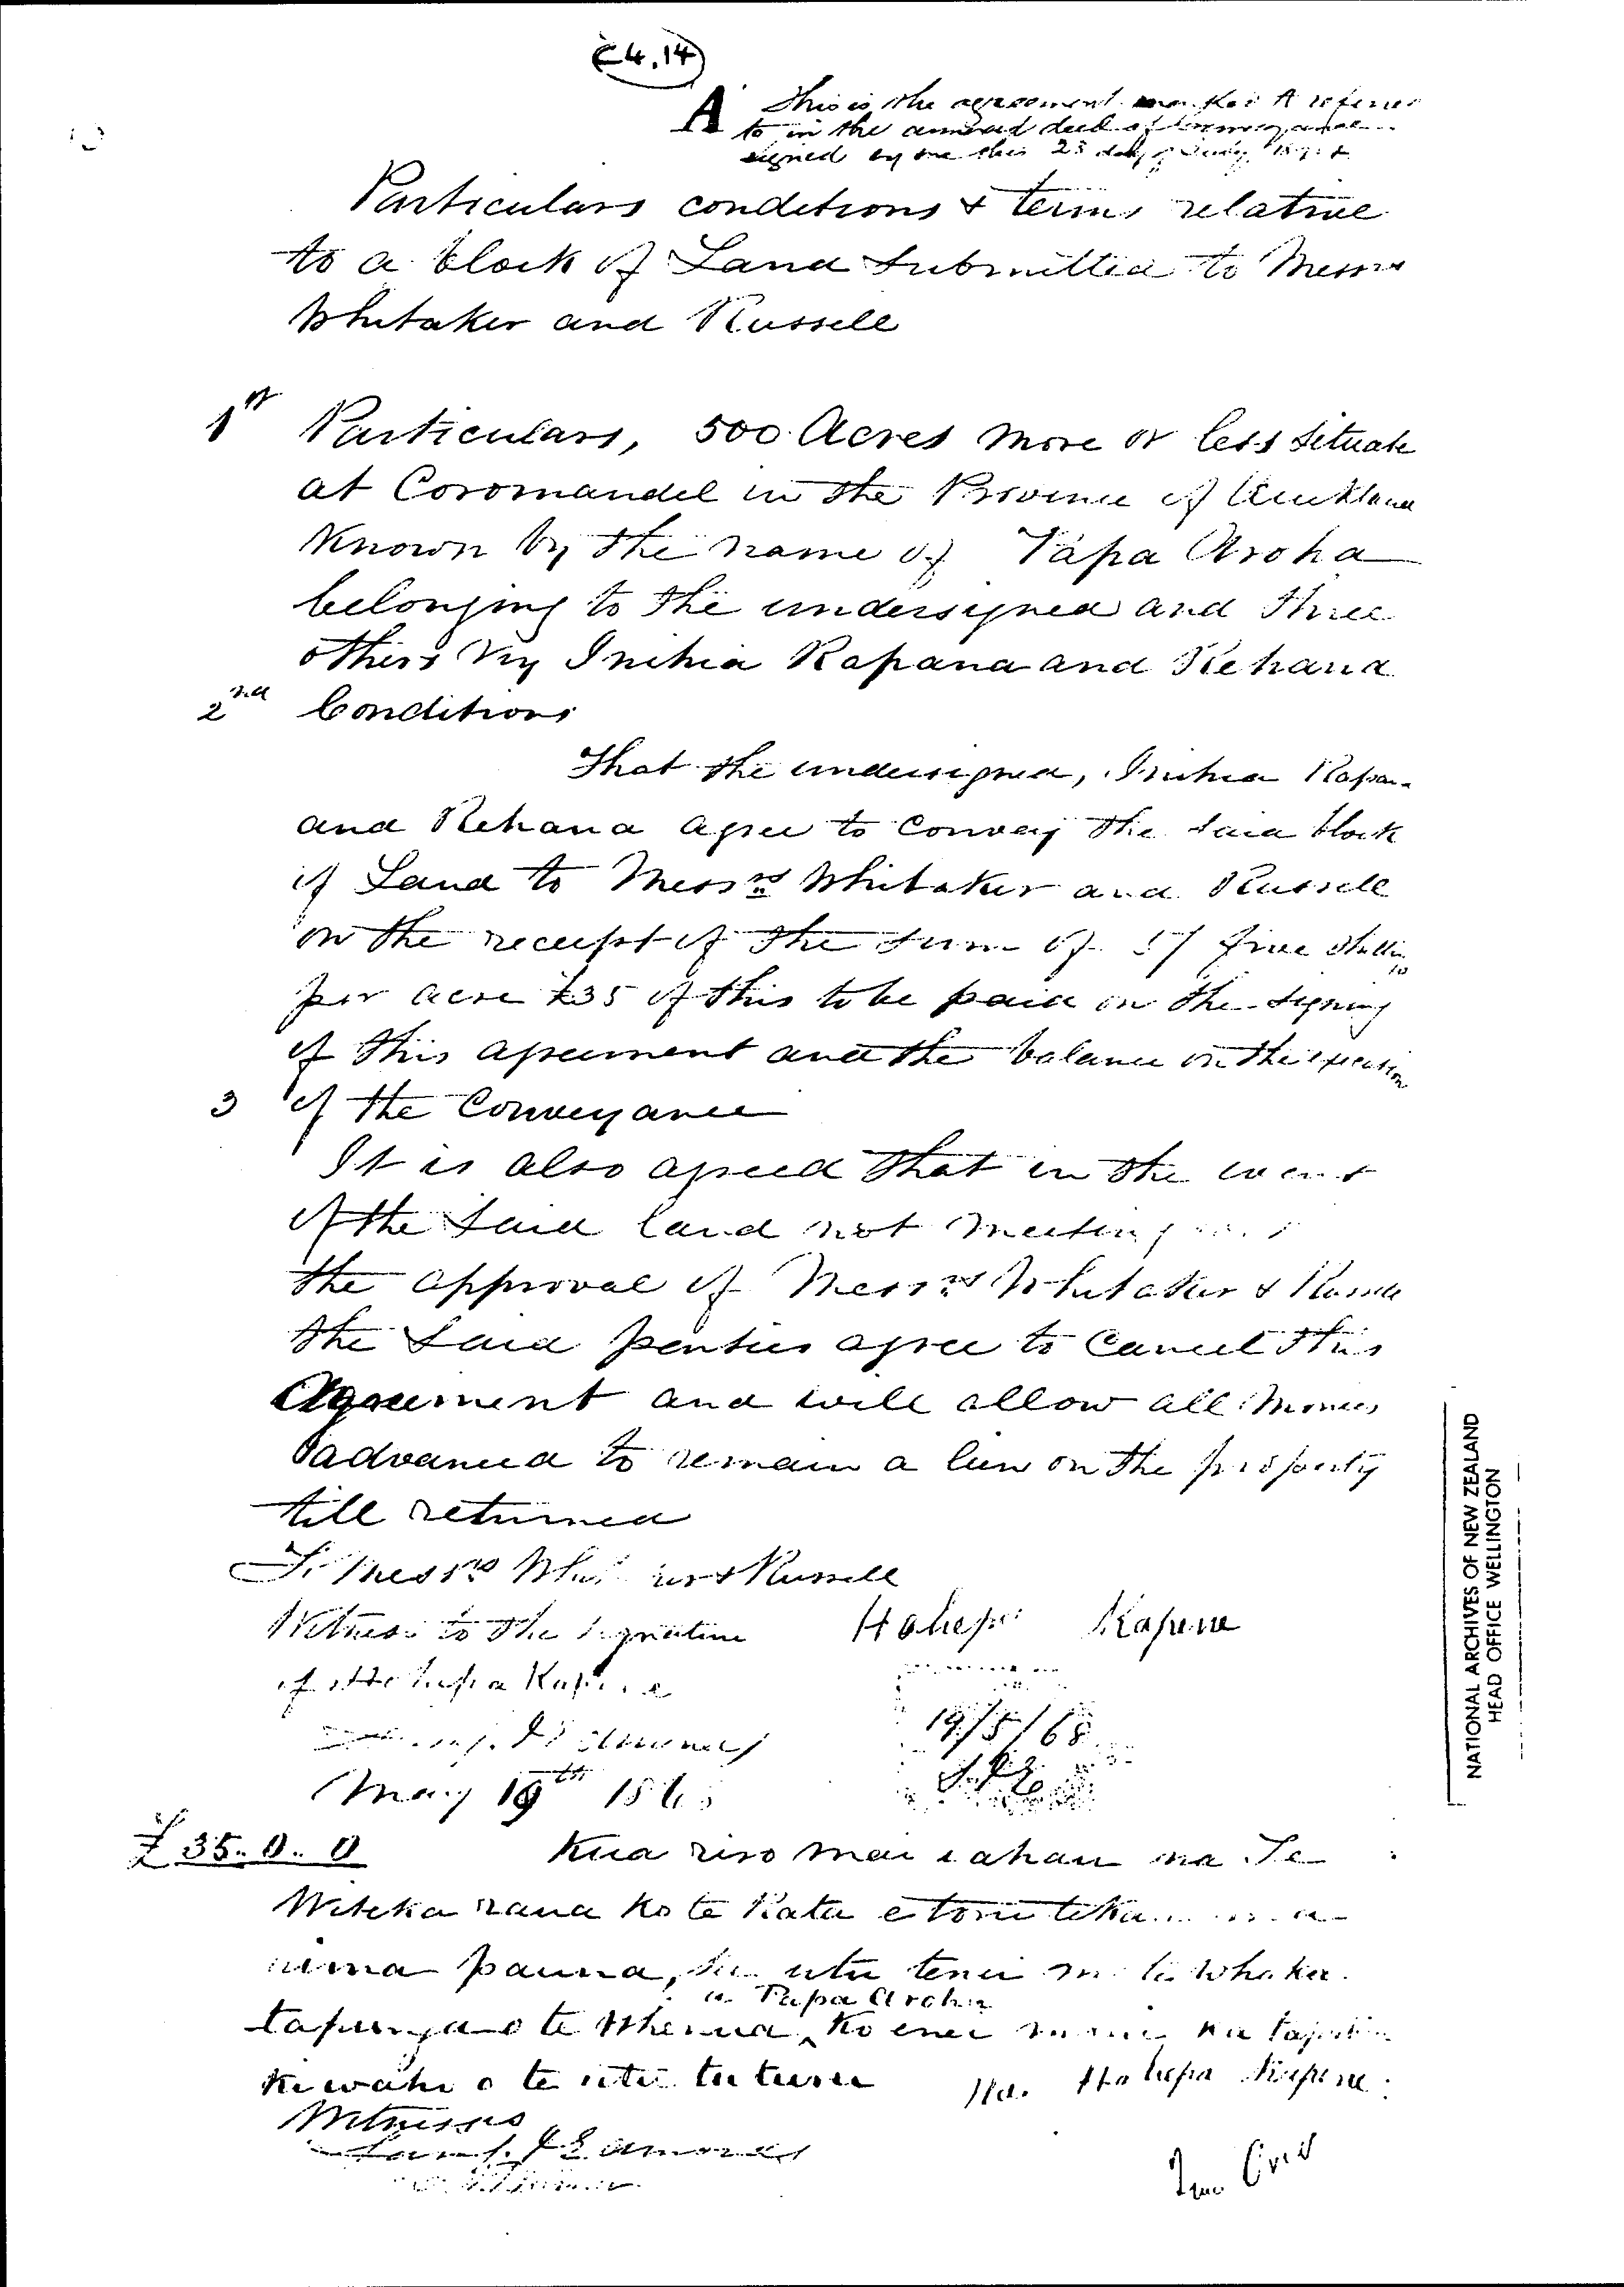 C4.14
A This is the agreement marked A referred
to in the annexed deed of Conveyance
signed by me this 23 day of July
Particulars conditions & terms relative
to a block of Land Submitted to Messrs
Whitaker and Russell
1st Particulars, 500 Acres more or less Situate
at Coromandel in the Province of Auckland
Known by the name of Papa Aroha
belonging to the undersigned and three
others viz Inihia Rapana and Rehana
2nd Conditions
That the undersigned, Inihia Rapana
and Rehana agree to Convey the said block
of Land to Messrs Whitaker and Russell
on the receipt of the sum of 5/ five shillings
per acre £35 of this to be paid on the signing
of this agreement and the balance on the execution
3 of the Conveyance
It is also agreed that in the event
of the Said land not meeting
the approval of Messrs Whitaker & Russell
the Said parties agree to Cancel this
Agreement and will allow all monies
advanced to remain a lien on the property
till returned
To Messrs Whitaker & Russell
Witness to the signature
Hohepa Kapene
of Hohepa Kapene
19/5/68
May 19th 186
£35.0.0
Kua riro mai i ahau na Te
Witeka raua ko te Rata e toru tekau ma
rima pauna, utu tenei mo te whaka
tapunga o te Whenua a Papa Aroha, Ko enei moni ka tapiri
ki waho o te utu tuturu
Na Hohepa Kapene
Witnesses
NATIONAL ARCHIVES OF NEW ZEALAND
HEAD OFFICE WELLINGTON